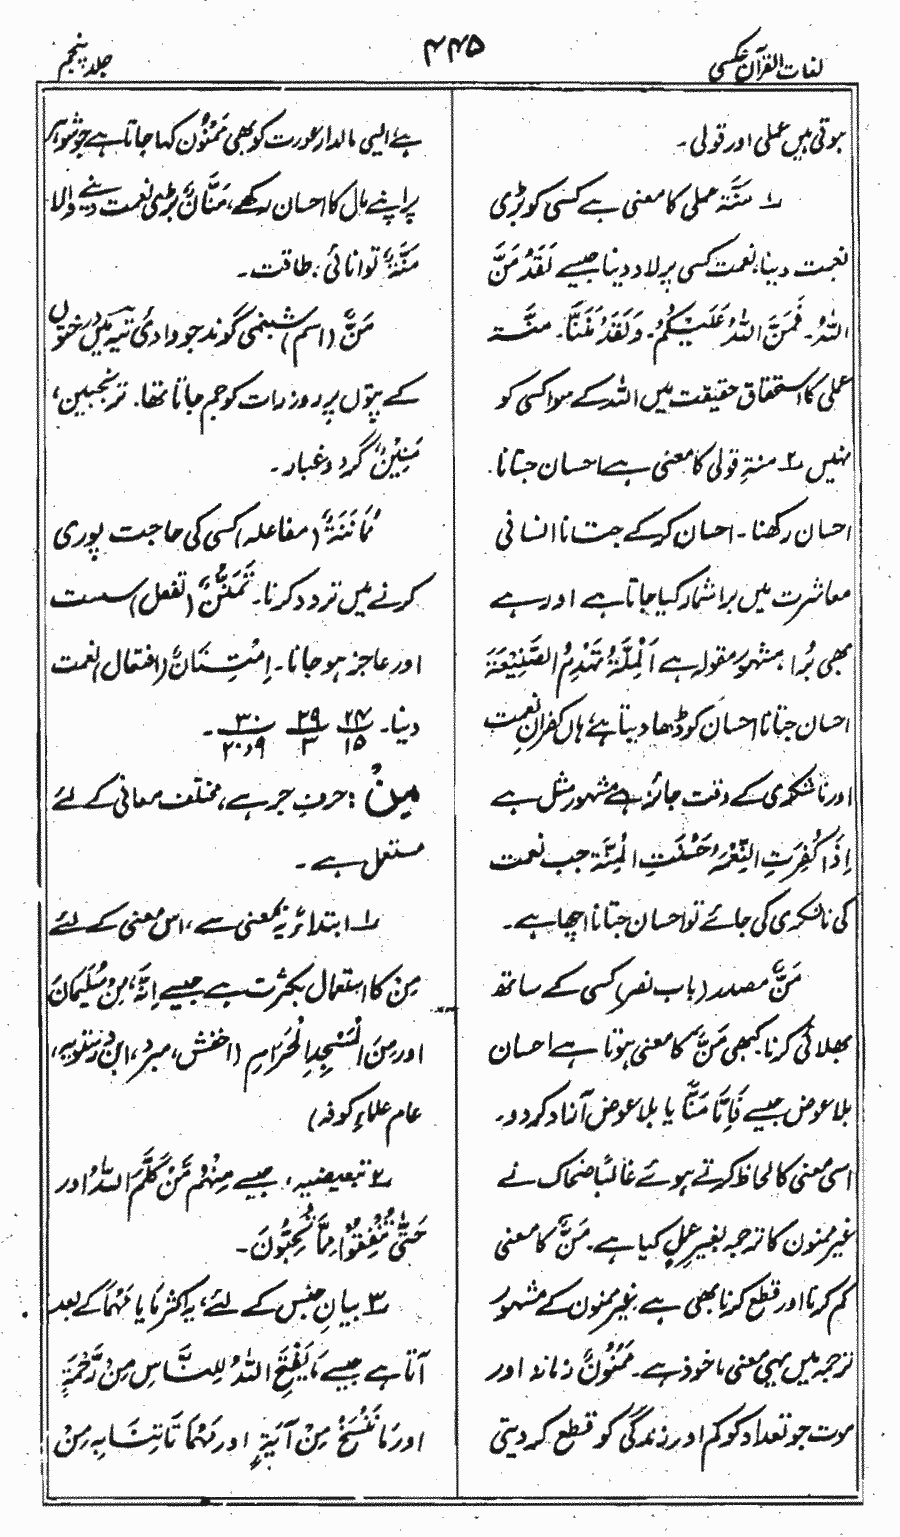 لغات القرآن عکسی
۴۴۵
جلد پنجم
ہوتی ہیں عملی اور قولی۔
۱ منّۃ عملی کا معنی ہے کسی کو بڑی
نعمت دینا، نعمت کسی پر لاد دینا جیسے لَقَدْ مَنَّ
اللّٰہُ۔ فَمَنَّ اللّٰہُ عَلَیْکُمْ۔ وَلَقَدْ مَنَنَّا۔ منّۃ
عملی کا استحقاق حقیقت میں اللہ کے سوا کسی کو
نہیں ۲ منۃِ قولی کا معنی ہے احسان جتانا
احسان رکھنا۔ احسان کرکے جتانا انسانی
معاشرت میں برا شمار کیا جاتا ہے اور ہے
بھی بُرا، مشہور مقولہ ہے اَلْمِنَّۃُ تَهْدِمُ الصَّنِیْعَۃَ
احسان جتانا احسان کو ڈھا دیتا ہے ہاں کفرانِ نعمت
اور ناشکری کے وقت جائز ہے مشہور مثل ہے
اِذَا کُفِرَتِ النِّعْمَۃُ حَسُنَتِ الْمِنَّۃُ جب نعمت
کی ناشکری کی جائے تو احسان جتانا اچھا ہے۔
مَنٌّ مصدر (باب نصر) کسی کے ساتھ
بھلائی کرنا۔ کبھی مَنٌّ کا معنی ہوتا ہے احسان
بلا عوض جیسے فَاِمَّا مَنًّا یا بلا عوض آزاد کر دو۔
اسی معنی کا لحاظ کرتے ہوئے غالباً ضحاک نے
غیر ممنون کا ترجمہ بغیر عمل کیا ہے۔ مَنٌّ کا معنی
کم کرنا اور قطع کرنا بھی ہے، غیر ممنون کے مشہور
ترجمہ میں یہی معنی ماخوذ ہے۔ مَمْنُوْنٌ زمانہ اور
موت جو تعداد کو کم اور زندگی کو قطع کر دیتی
ہے ایسی مالدار عورت کو بھی مَمْنُوْن کہا جاتا ہے جو شوہر
پر اپنے مال کا احسان رکھے، مَنَّانٌ بڑی نعمت دینے والا
مُنَّۃٌ توانائی، طاقت۔
مَنٌّ (اسم) شبنمی گوند جو وادیٔ تیہ میں درختوں
کے پتوں پر روز رات کو جم جاتا تھا۔ ترنجبین،
مَنِیْنٌ گرد و غبار۔
مُمَانَنَۃٌ (مفاعلہ) کسی کی حاجت پوری
کرنے میں تردد کرنا۔ تَمَنُّنٌ (تفعل) سست
اور عاجز ہو جانا۔ اِمْتِنَانٌ (افتعال) نعمت
دینا۔ ۲۴/۱۵ ۲۹/۳ ۳۰/۹ و ۲۰۔
مِنْ : حرفِ جر ہے، مختلف معانی کے لئے
مستعمل ہے۔
۱ ابتدائیہ بمعنی سے، اس معنی کے لئے
مِنْ کا استعمال بکثرت ہے جیسے اِنَّہٗ مِنْ سُلَیْمٰنَ
اور مِنَ الْمَسْجِدِ الْحَرَامِ (اخفش، مبرد، ابن درستویہ،
عام علماءِ کوفہ)
۲ تبعیضیہ، جیسے مِنْهُمْ مَنْ کَلَّمَ اللّٰہُ اور
حَتّٰی تُنْفِقُوْا مِمَّا تُحِبُّوْنَ۔
۳ بیانِ جنس کے لئے، یہ اکثر مَا یا مَهْمَا کے بعد
آتا ہے جیسے مَا یَفْتَحِ اللّٰہُ لِلنَّاسِ مِنْ رَّحْمَۃٍ
اور مَا نَنْسَخْ مِنْ اٰیَۃٍ اور مَهْمَا تَاْتِنَا بِہٖ مِنْ